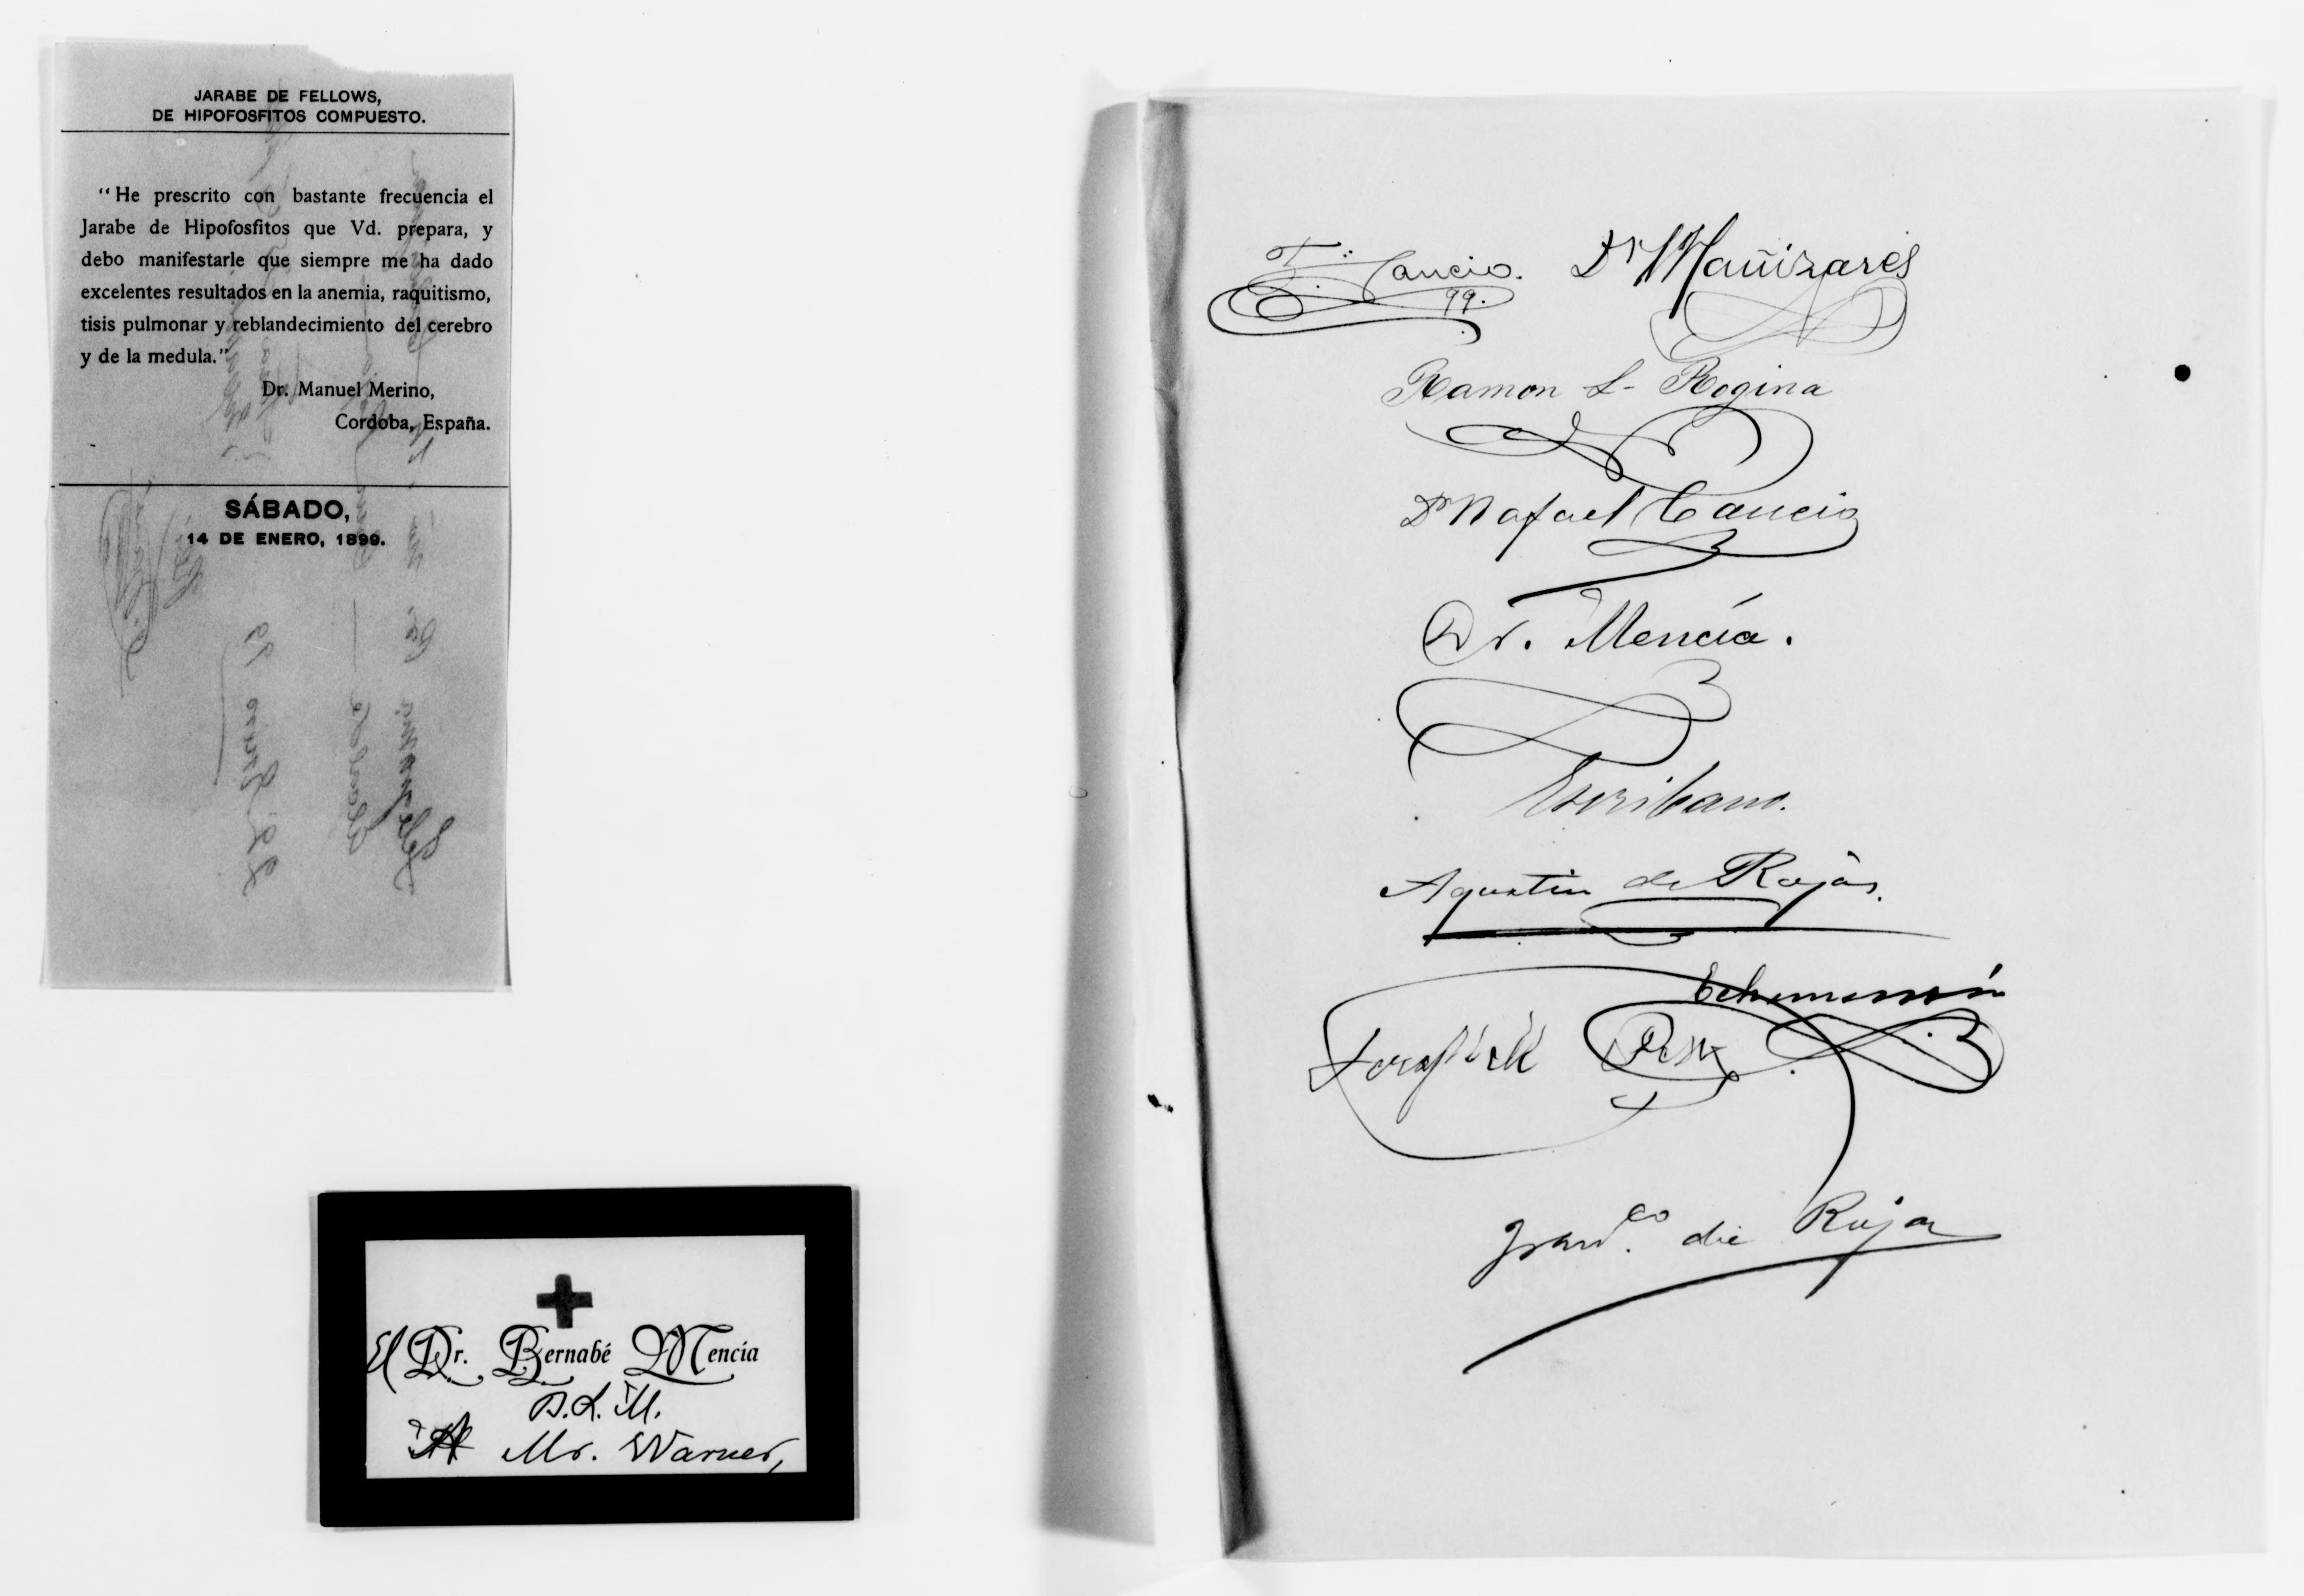 JARABE DE FELLOWS,
DE HIPOFOSFITOS COMPUESTO.
“He prescrito con bastante frecuencia el
Jarabe de Hipofosfitos que Vd. prepara, y
debo manifestarle que siempre me ha dado
excelentes resultados en la anemia, raquitismo,
tisis pulmonar y reblandecimiento del cerebro
y de la medula.”
Dr. Manuel Merino,
Cordoba, España.
SÁBADO,
14 DE ENERO, 1899.
El Dr. Bernabé Mencía
B.L.M.
A Mr. Warner,
Cancio.
99.
Dr Mañizares
Ramon L- Rogina
Dr Rafael Cancio
Dr. Mencía.
Escribano.
Agustin de Rojas.
Echemendía
Franco. de Rojas